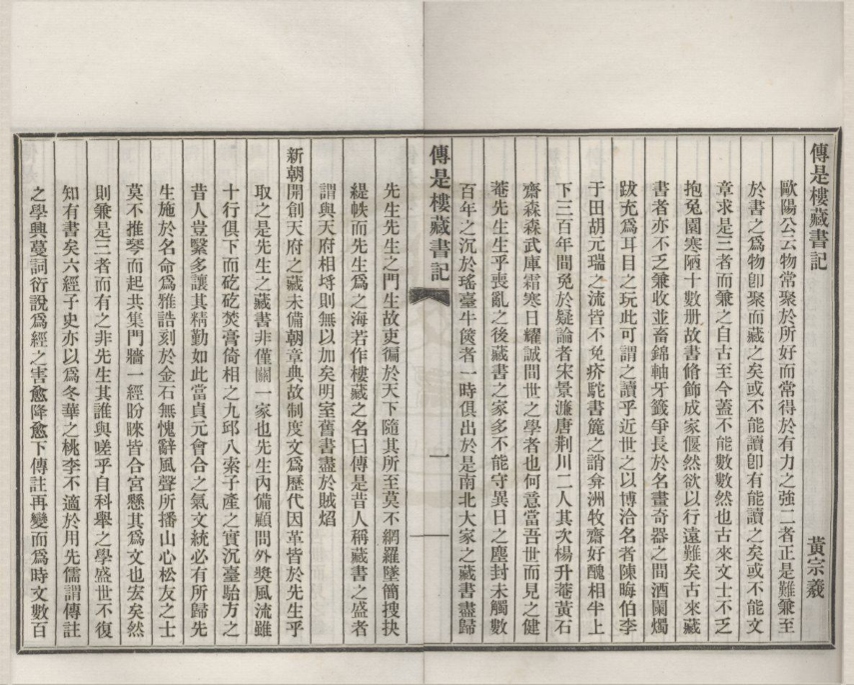 傳是樓藏書記
黃宗羲
歐陽公云物常聚於所好而常得於有力之強二者正是難兼至
於書之爲物卽聚而藏之矣或不能讀卽有能讀之矣或不能文
章求是三者而兼之自古至今蓋不能數數然也古來文士不乏
抱兔園寒陋十數册故書餙飾成家偃然欲以行遠難矣古來藏
書者亦不乏兼收並畜錦軸牙籤爭長於名畫奇器之間酒闌燭
跋充爲耳目之玩此可謂之讀乎近世之以博洽名者陳晦伯李
于田胡元瑞之流皆不免疥駝書簏之誚弇洲牧齋好醜相半上
下三百年間免於疑論者宋景濂唐荆川二人其次楊升菴黃石
齋森森武庫霜寒日耀誠間世之學者也何意當吾世而見之健
菴先生生乎喪亂之後藏書之家多不能守異日之塵封未觸數
百年之沉於瑤臺牛篋者一時俱出於是南北大家之藏書盡歸
傳是樓藏書記
一
先生先生之門生故吏徧於天下隨其所至莫不網羅墜簡搜抉
緹帙而先生爲之海若作樓藏之名曰傳是昔人稱藏書之盛者
謂與天府相埒則無以加矣明室舊書盡於賊焰
新朝開創天府之藏未備朝章典故制度文爲歷代因革皆於先生乎
取之是先生之藏書非僅關一家也先生內備顧問外獎風流雖
十行俱下而矻矻焚膏倚相之九邱八索子產之實沉臺駘方之
昔人豈繫多讓其精勤如此當貞元會合之氣文統必有所歸先
生施於名命爲雅誥刻於金石無愧辭風聲所播山心松友之士
莫不推琴而起共集門牆一經盼睞皆合宮懸其爲文也宏矣然
則兼是三者而有之非先生其誰與嗟乎自科舉之學盛世不復
知有書矣六經子史亦以爲冬華之桃李不適於用先儒謂傳註
之學興蔓詞衍說爲經之害愈降愈下傳註再變而爲時文數百